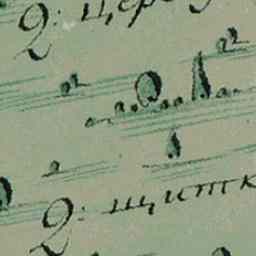 2. цер
2. щитк